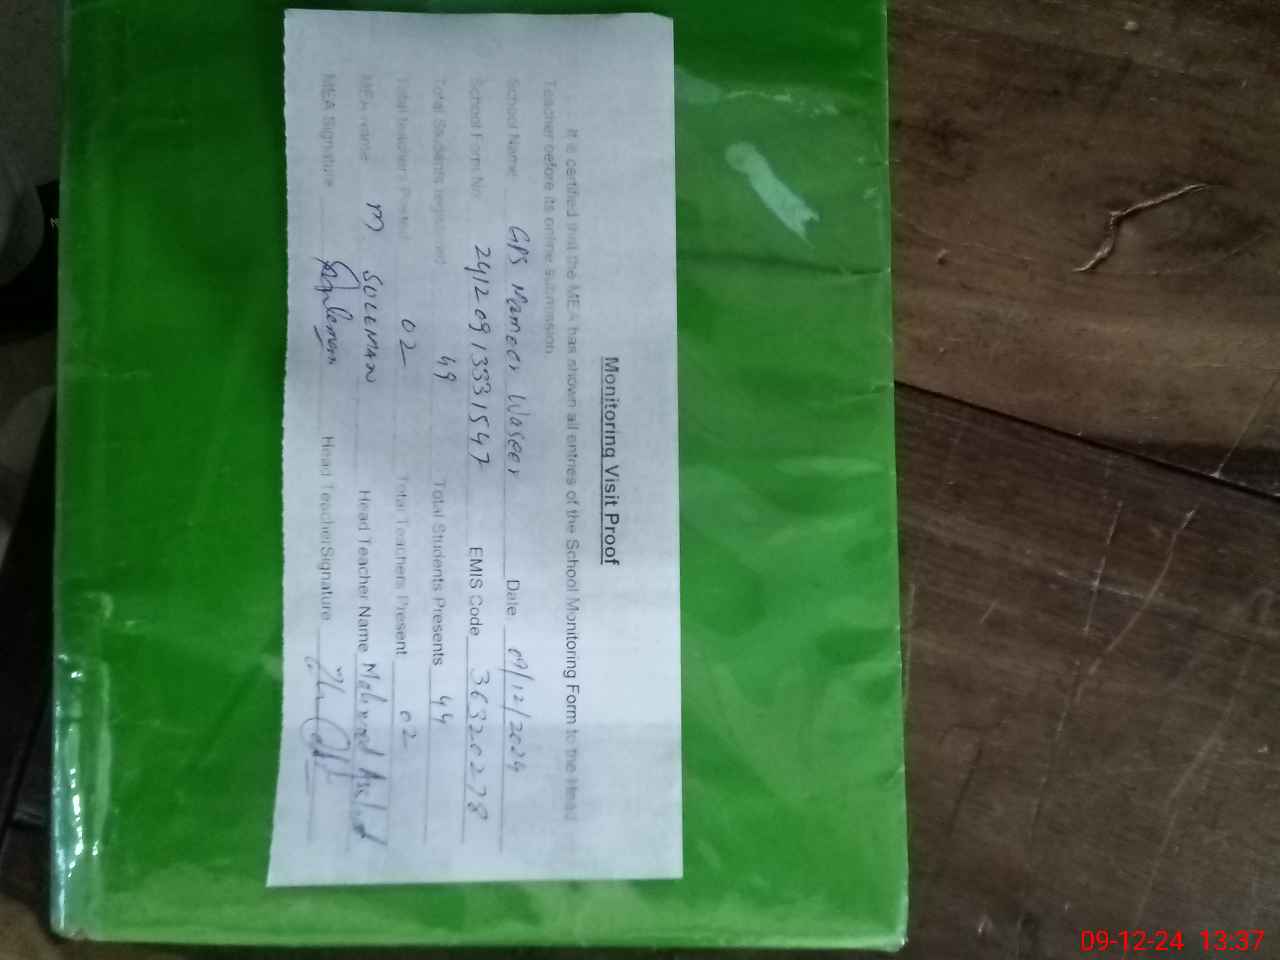 Monitoring Visit Proof
It is certified that the MEA has shown all entries of the School Monitoring Form to the Head
Teacher before its online submission.
School Name GPS Mameer Waseer Date 09/12/2024
School Form No 24120913331547 EMIS Code 36320278
Total Students Registered 49 Total Students Presents 44
Total Teachers Posted 02 Total Teachers Present 02
MEA name M SULEMAN Head Teacher Name
MEA Signature Head Teacher Signature
09-12-24 13:37